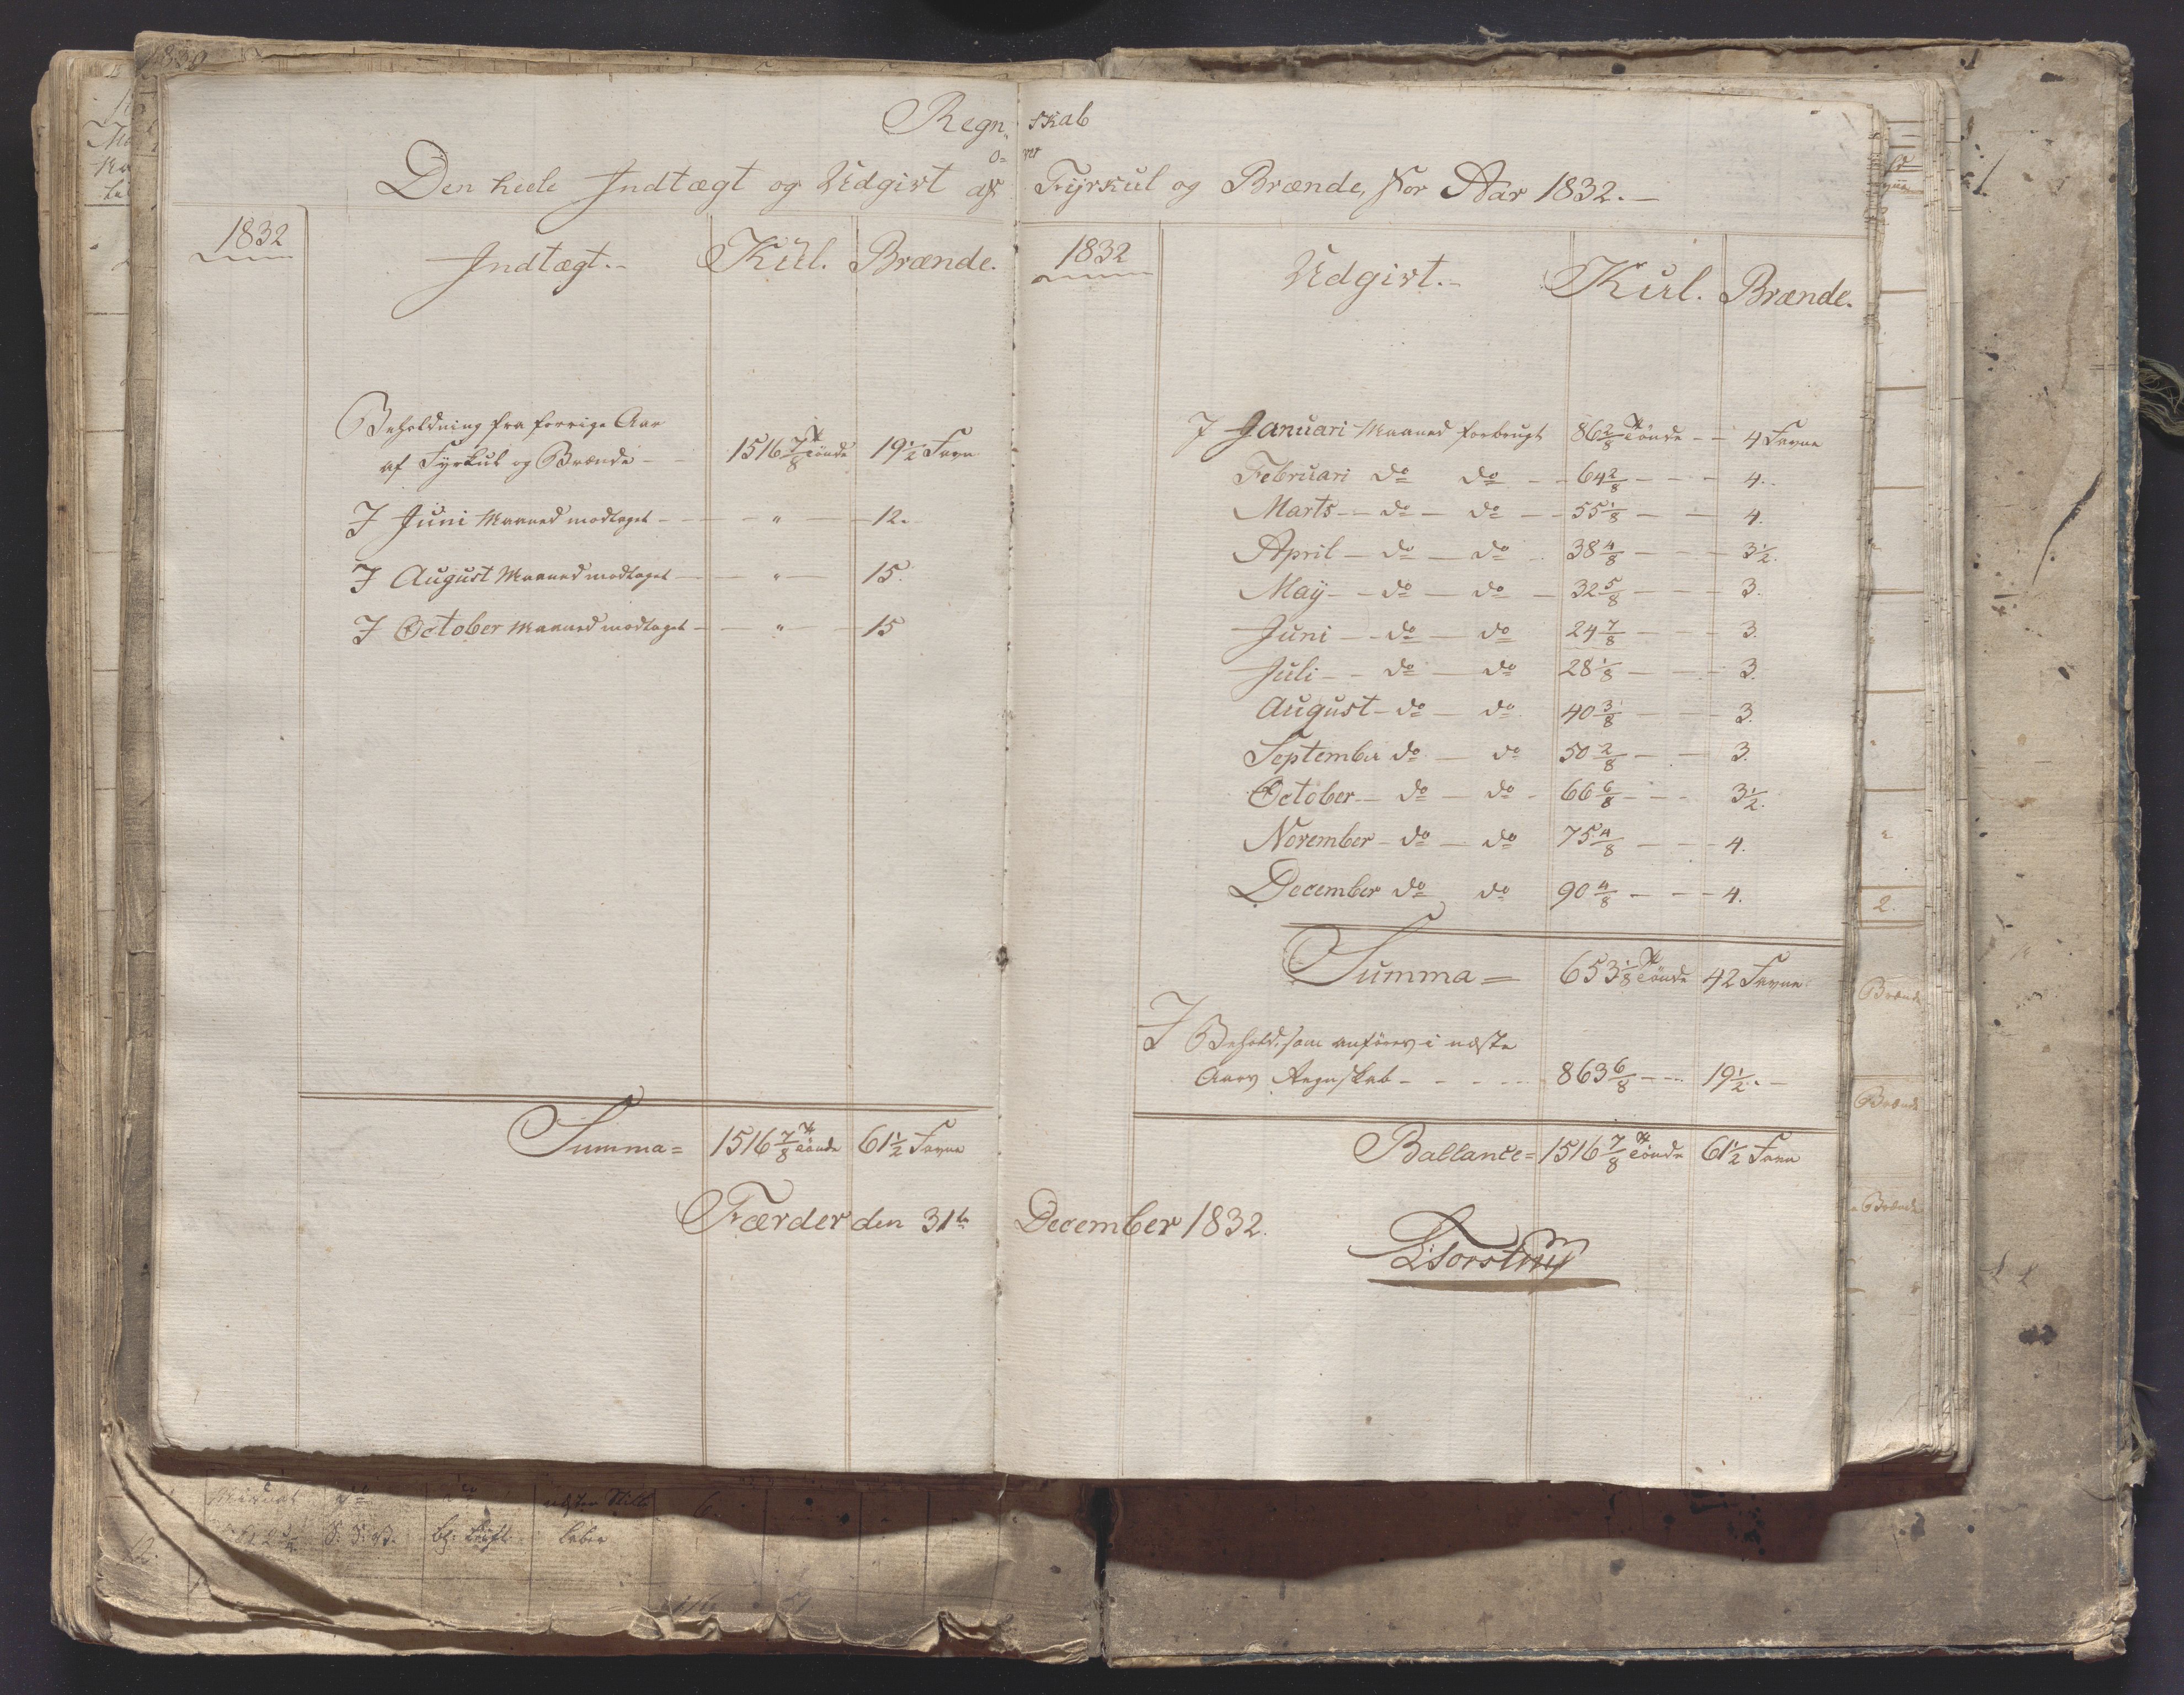 Regn„ skab
o= ver
Den heele Indtægt og Udgivt af Fyrkul og Brænde, for Aar 1832.
1832 Indtægt. Kul. Brænde.
Beholdning fra forrige Aar
af Fyrkul og Brænde - 1516 7/8 Tönde 19 1/2 Favn
I Juni Maaned modtaget - - " - 12.
I August Maaned modtaget - - " - 15.
I October Maaned modtaget - - " - 15
Summa = 1516 7/8 Tönde 61 1/2 Favne
1832 Udgivt. Kul. Brænde.
I Januari Maaned forbrugt 86 2/8 Tönde - - 4 Favne
Februari do do - - 64 2/8 - - - 4.
Marts - do - do - - 55 1/8 - - 4.
April - do - do - 38 4/8 - - - 3 1/2.
May - - do - do - 32 5/8 - - - 3.
Juni - - do - do 24 7/8 - - - 3.
Juli - - do - do 28 1/8 - - - 3.
August - do - do 40 3/8 - - - 3.
September do - do 50 2/8 - - 3.
October - do - do - 66 6/8 - - - 3 1/2.
November - do - do 75 4/8 - - - 4.
December do do 90 4/8 - - - 4.
Summa = 653 1/8 Tönde 42 Favne
I Behold. som anföres i næste
Aars Regnskab - - - - 863 6/8 - - - 19 1/2 . -
Ballance = 1516 7/8 Tönde 61 1/2 Favn
Færder den 31te December 1832.
2.
Brænde
Brænde
Brænde